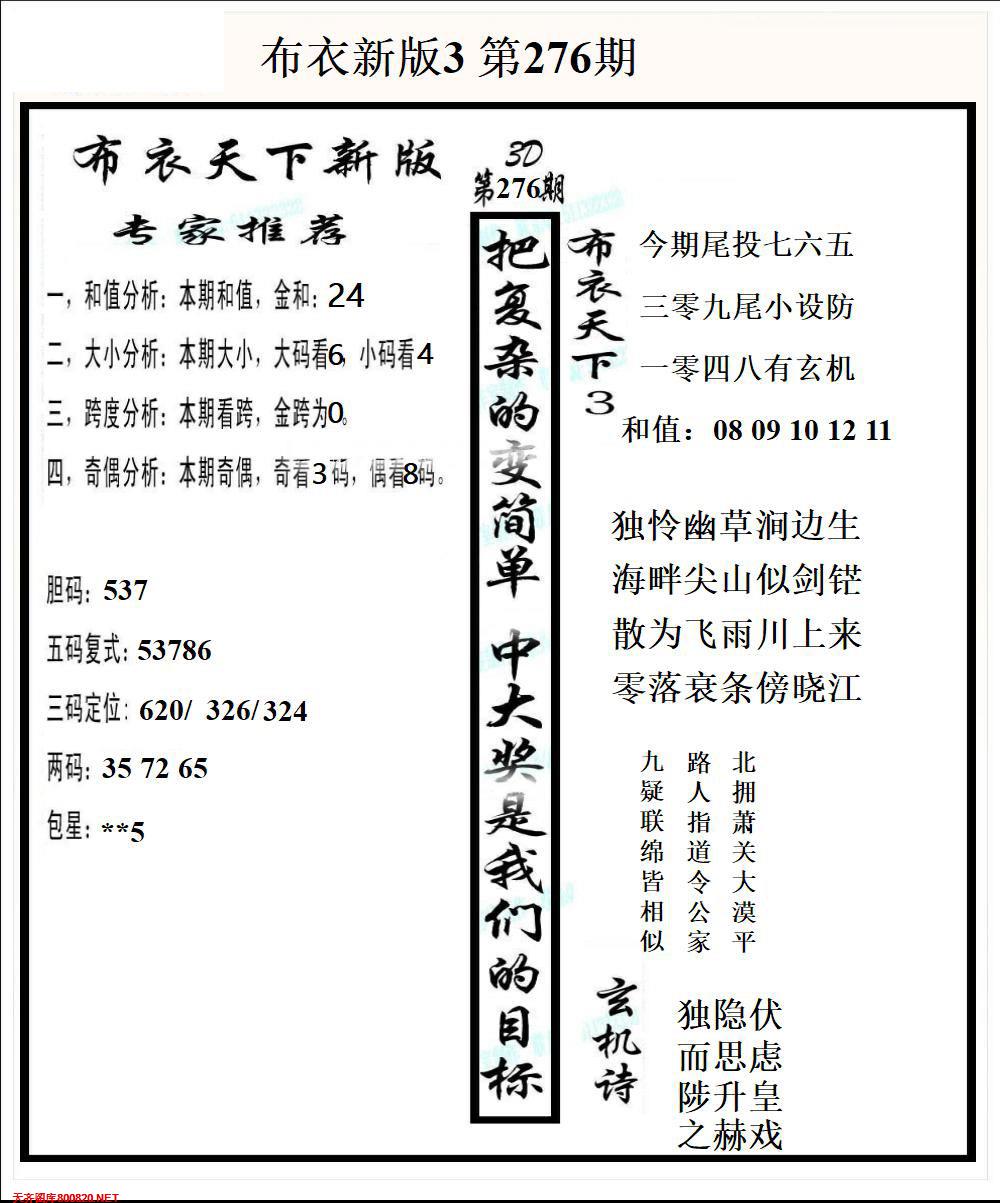 布衣新版3 第276期
布衣天下新版
专家推荐
一，和值分析：本期和值，金和：24
二，大小分析：本期大小，大码看6，小码看4
三，跨度分析：本期看跨，金跨为0。
四，奇偶分析：本期奇偶，奇看3码，偶看8码。
胆码：537
五码复式：53786
三码定位：620/ 326/324
两码：35 72 65
包星：**5
3D
第276期
把复杂的变简单 中大奖是我们的目标
布衣天下3
今期尾投七六五
三零九尾小设防
一零四八有玄机
和值：08 09 10 12 11
独怜幽草涧边生
海畔尖山似剑铓
散为飞雨川上来
零落衰条傍晓江
北拥萧关大漠平
路人指道令公家
九疑联绵皆相似
玄机诗
独隐伏
而思虑
陟升皇
之赫戏
天齐图库800820.NET